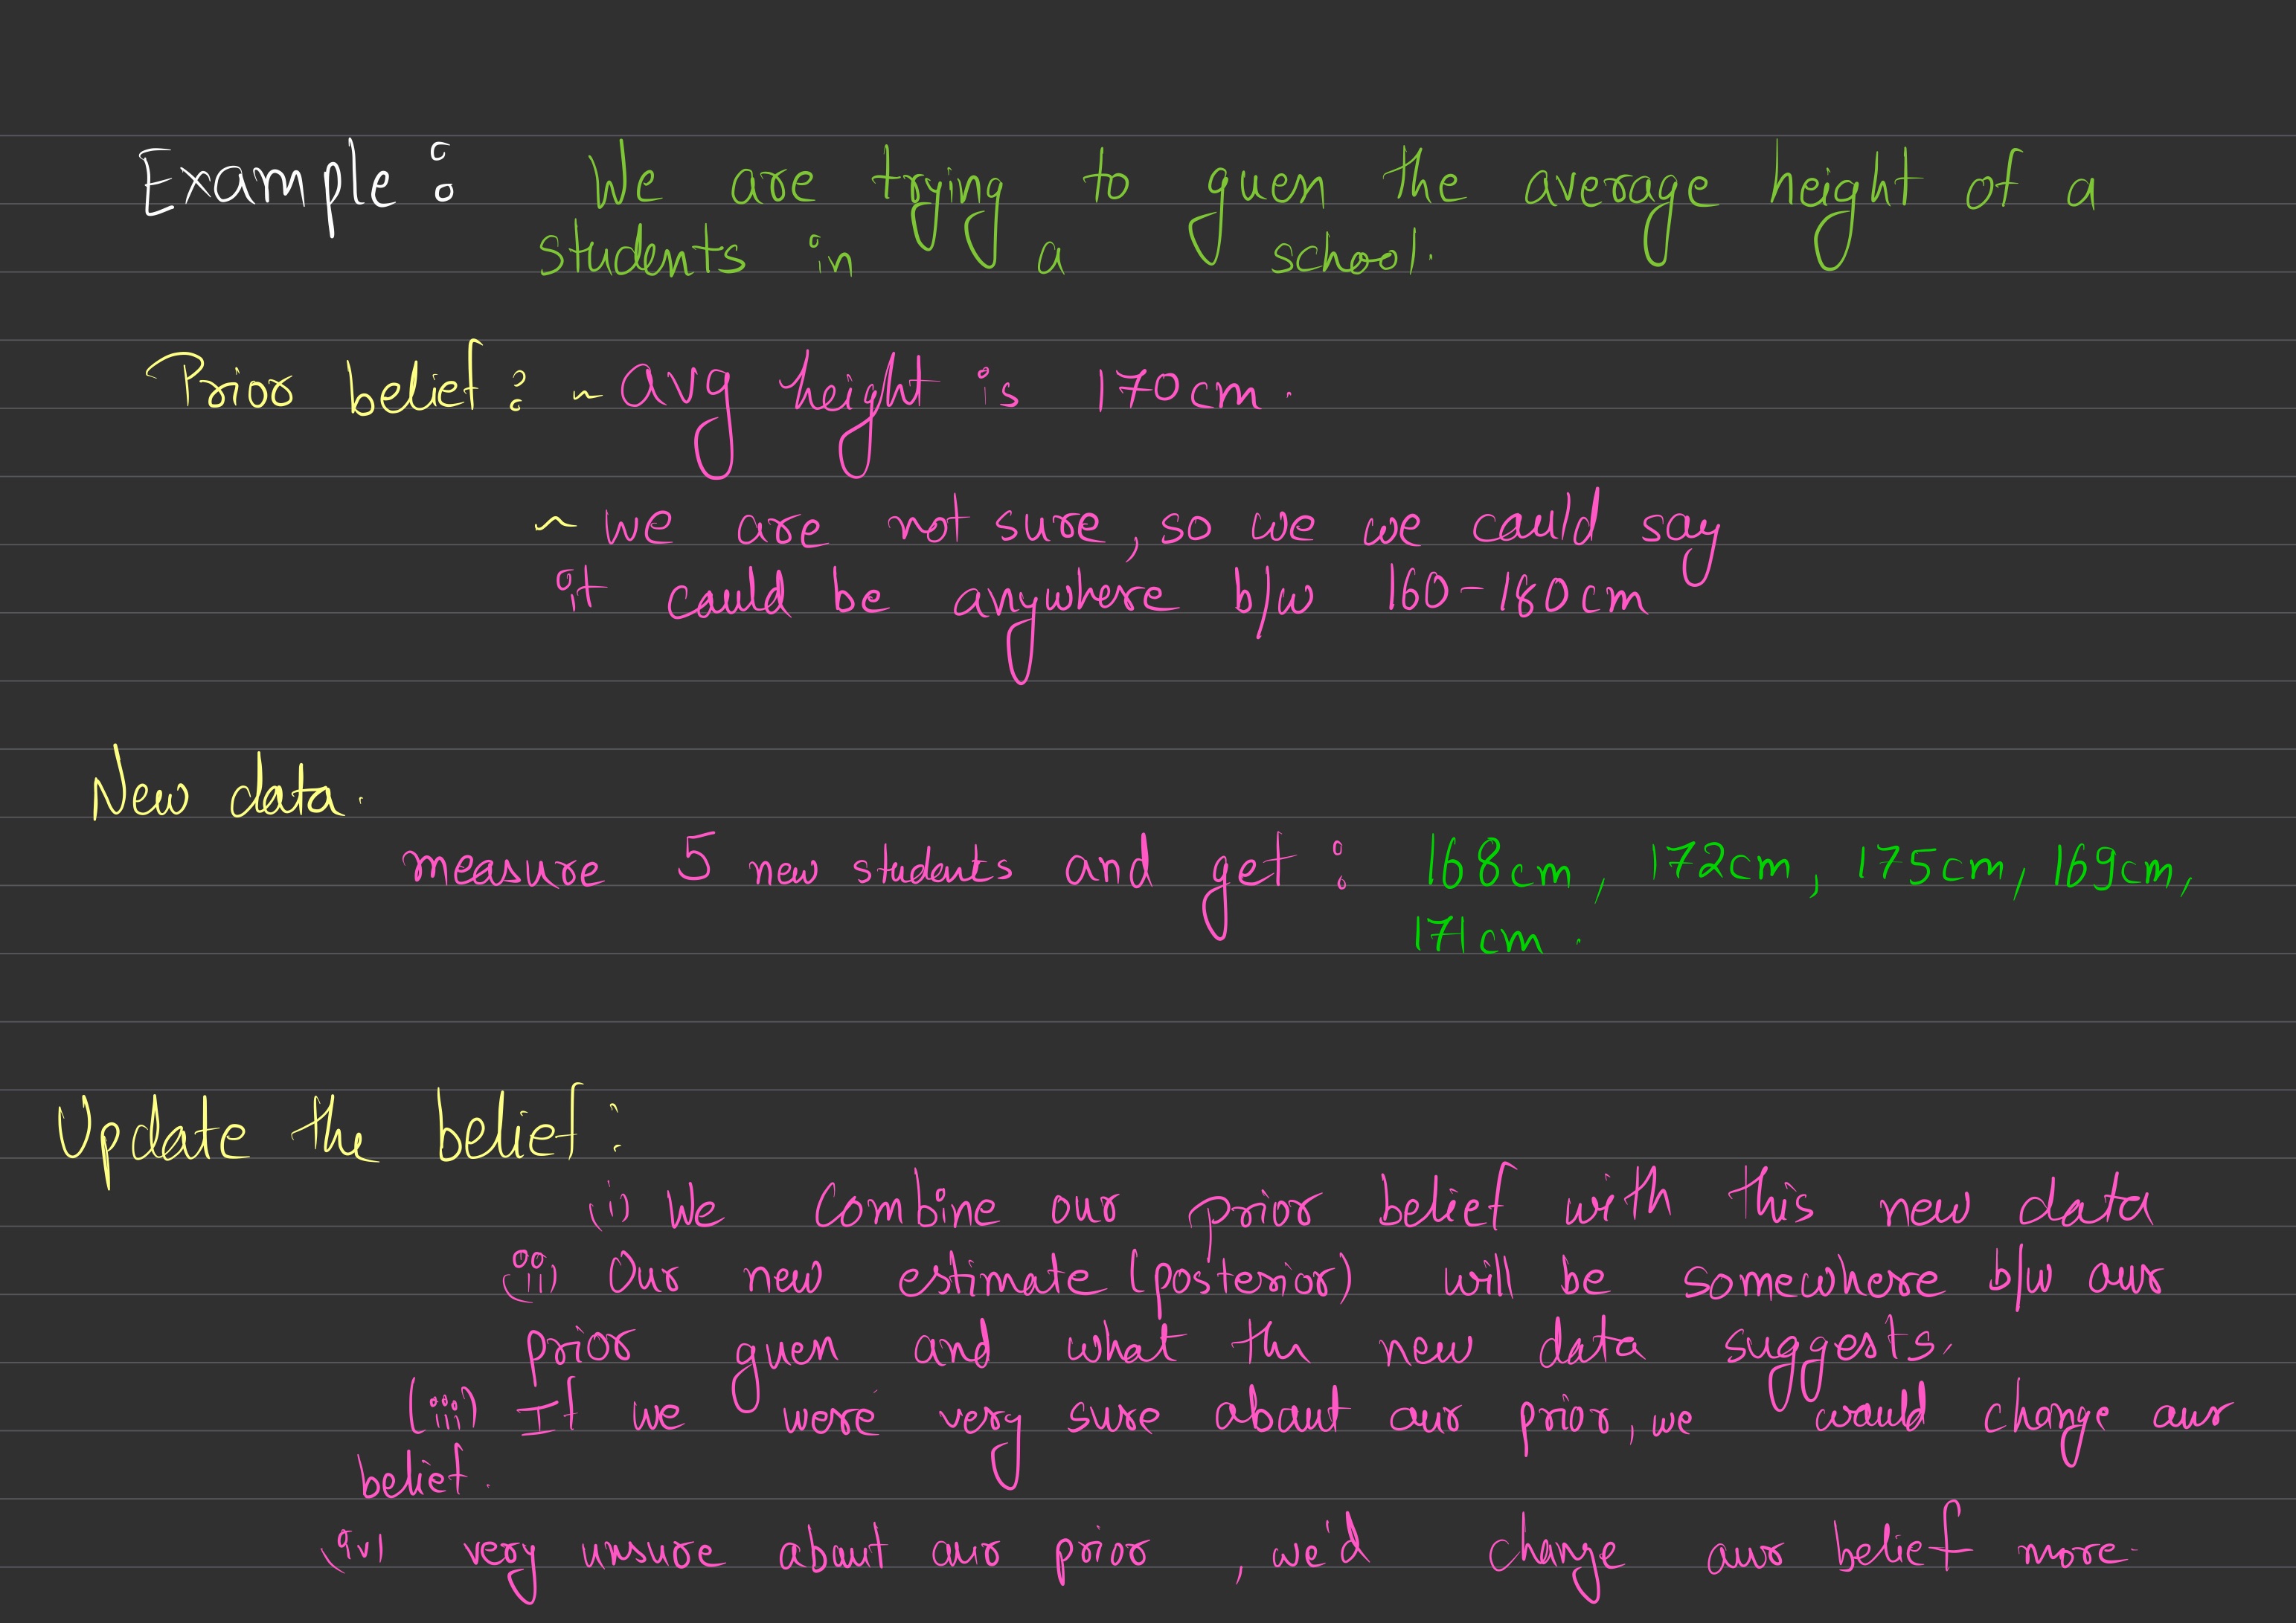 Example : We are trying to guess the average height of a
students in a school.
Prior belief : ~ avg height is 170cm.
~ we are not sure, so we we could say
it could be anywhere b/w 160-180 cm
New data.
measure 5 new students and get : 168cm, 172cm, 175cm, 169cm,
171cm.
Update the belief :
(i) We Combine our prior belief with this new data
(ii) Our new estimate (posterior) will be somewhere b/w our
prior guess and what the new data suggests.
(iii) If we were very sure about our prior, we would change our
belief.
(iv) very unsure about our prior, we'd change our belief more.